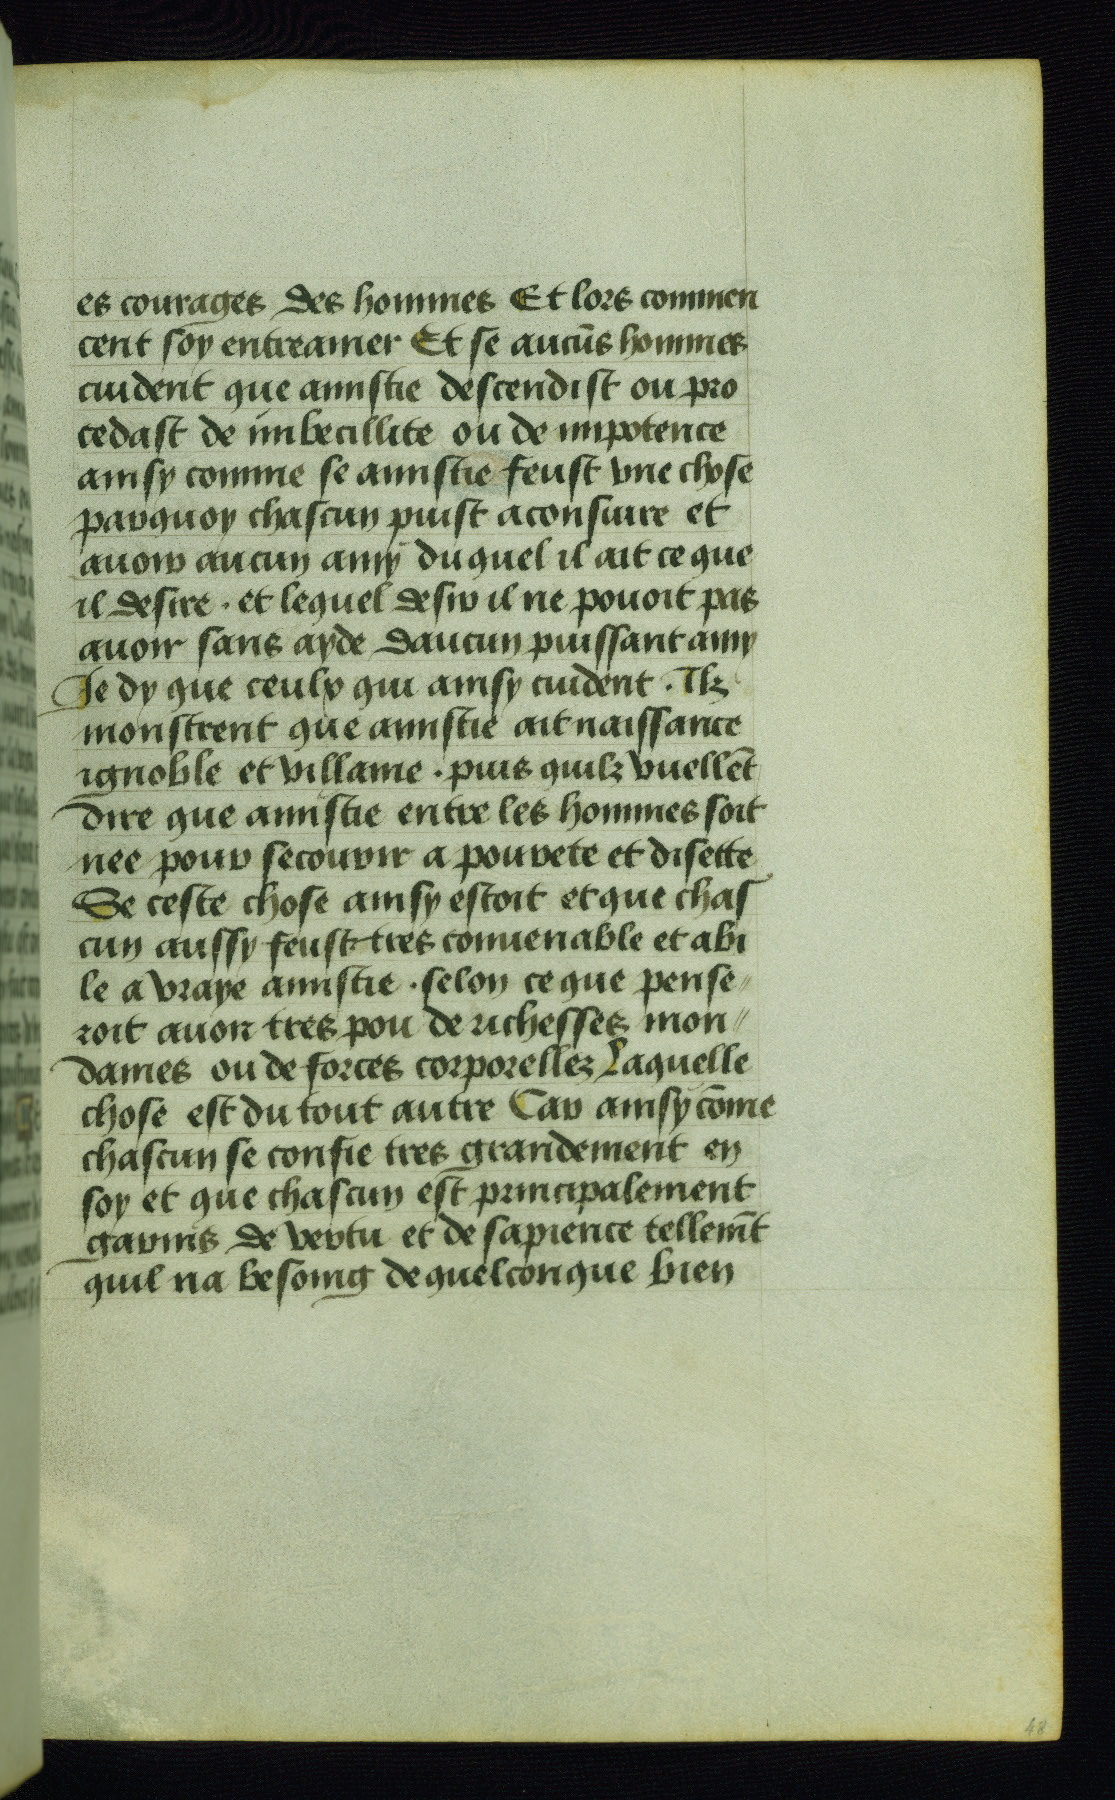 es courages des hommes Et lors commen
cent soy entreamer Et se aucũs hommes
cuident que amistie descendist ou pro
cedast de imbecillite ou de impotence
ainsy comme se amistie feust vne chose
parquoy chascun puist aconsuire et
auoir aucun amy duquel il ait ce que
il desire . et lequel desir il ne pouoit pas
auoir sans ayde daucun puissant amy
Je dy que ceulx qui ainsy cuident . Ilz
monstrent que amistie ait naissance
ignoble et villaine . puis quilz vuellẽt
dire que amistie entre les hommes soit
nee pour secourir a pourete et disette
Se ceste chose ainsy estoit et que chas
cun aussy feust tres conuenable et abi
le a vraye amistie . selon ce que pense〃
roit auoir tres pou de richesses mon〃
daines ou de forces corporellez Laquelle
chose est du tout autre Car ainsy cõme
chascun se confie tres grandement en
soy et que chascun est principalement
garnis de vertu et de sapience tellem̃t
quil na besoing de quelconque bien
48